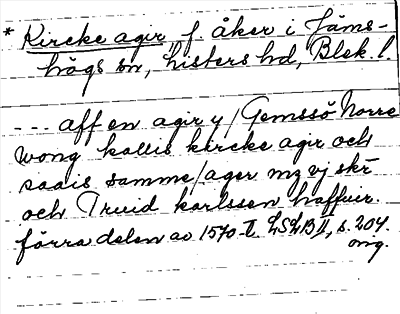 * Kircke agir f. åker i Jäms-
högs sn, Listers hd, Blek. l.
--- aff en agir y / Gemssö Norre
wong kallis kircke agir och
saais samme / ager mz vj skr
och Truid Karlssen haffuir.
förra delen av 1570-t. LSLB II, s. 204.
orig.